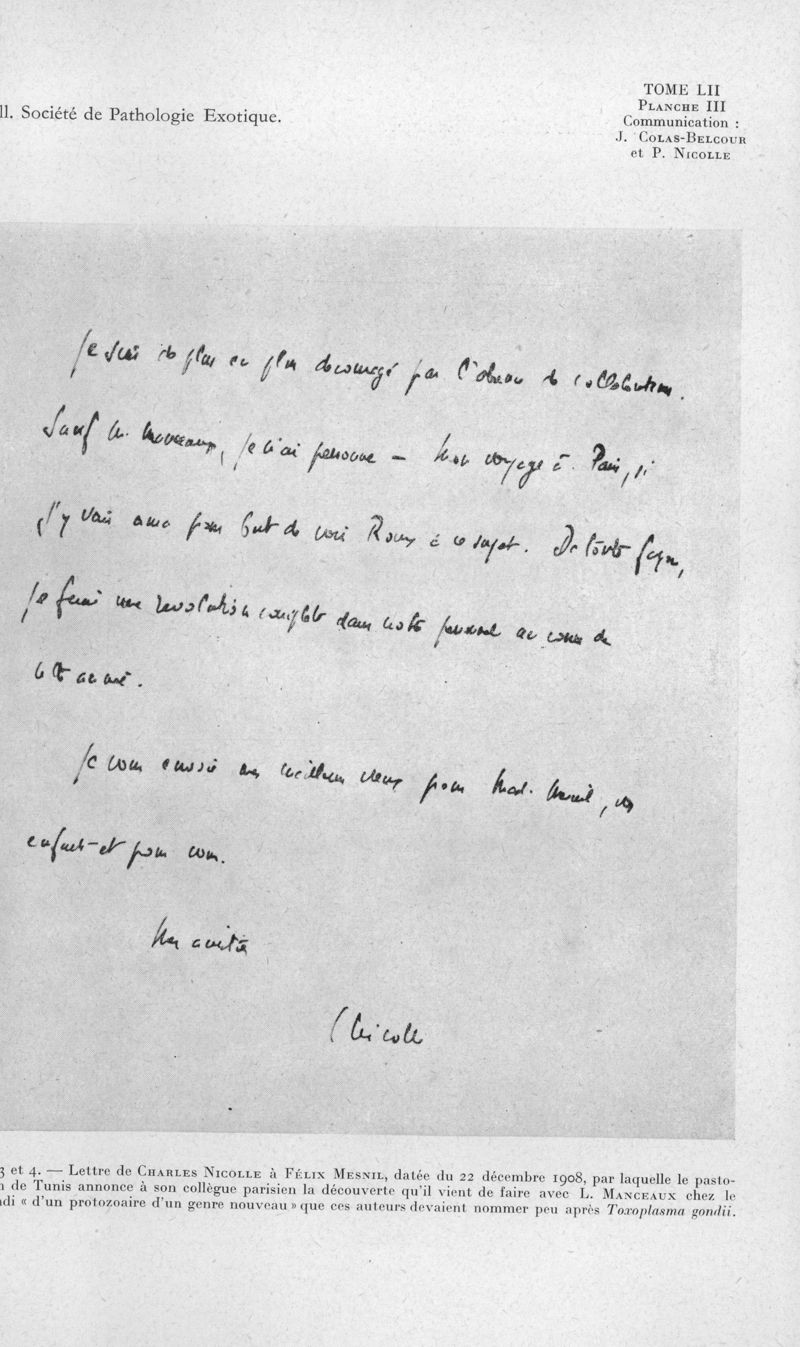 TOME LII
ll. Société de Pathologie Exotique.
PLANCHE III
Communication :
J. COLAS-BELCOUR
et P. NICOLLE
Je suis de plus en plus découragé par l'absence de collaborateurs.
Sauf M. Manceaux, je n'ai personne — Mon voyage à Paris, si
j'y vais aura pour but de voir Roux à ce sujet. De toute façon,
je ferai une révolution complète dans notre personnel au cours de
cette année.
Je vous envoie mes meilleurs vœux pour Mad. Mesnil, vos
enfants et pour vous.
Mes amitiés
CNicolle
3 et 4. — Lettre de CHARLES NICOLLE à FÉLIX MESNIL, datée du 22 décembre 1908, par laquelle le pasto-
n de Tunis annonce à son collègue parisien la découverte qu'il vient de faire avec L. MANCEAUX chez le
ndi « d'un protozoaire d'un genre nouveau » que ces auteurs devaient nommer peu après Toxoplasma gondii.